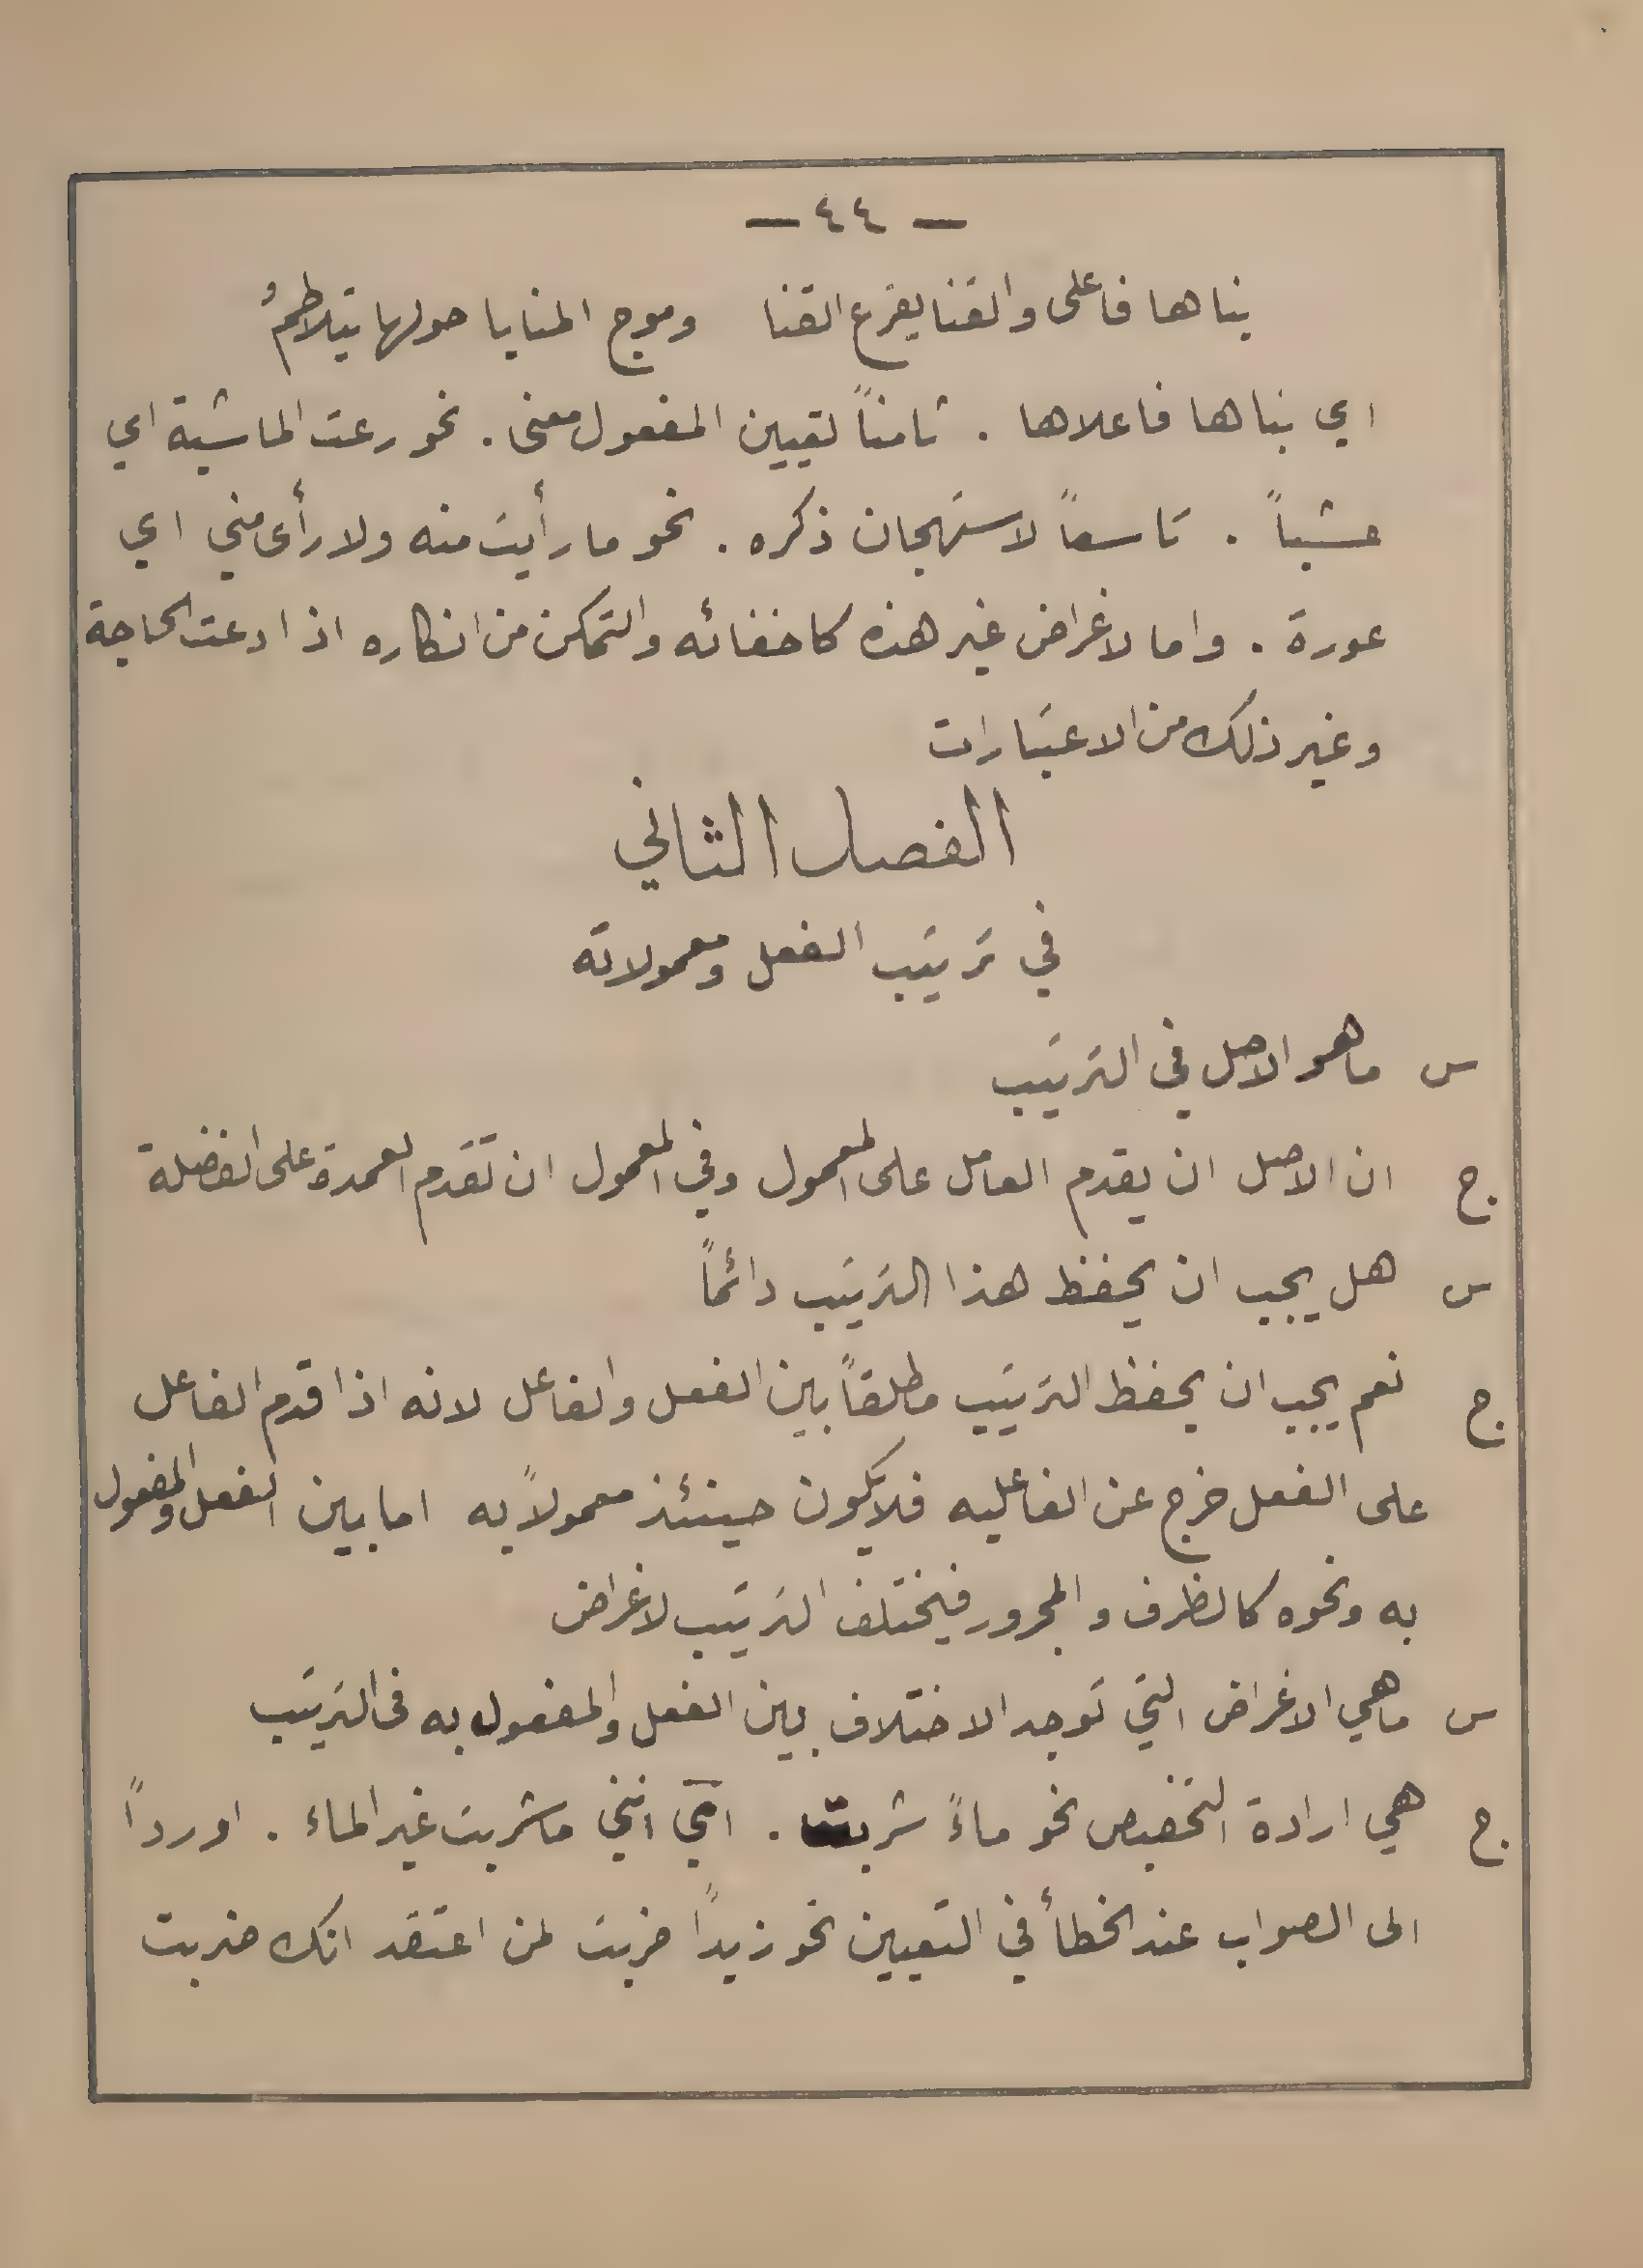 — ٤٤ —
بناها فاعلى والقنا يقرع القنا وموج المنايا حولها يتلاطمُ
اي بناها فاعلاها . ثامناً لتعيين المفعول معنى . نحو رعت الماشية اي
عشباً . تاسعاً لاستهجان ذكره . نحو ما رأيت منه ولا رأى مني اي
عورة . واما لاغراض غير هذه كاخفائه والتمكن من انكاره اذا دعت الحاجة
وغير ذلك من الاعتبارات
الفصل الثاني
في ترتيب الفعل ومعمولاته
س ما هو الاصل في الترتيب
ج ان الاصل ان يقدم العامل على المعمول وفي المعمول ان تقدم العمدة على الفضلة
س هل يجب ان يحفظ هذا الترتيب دائماً
ج نعم يجب ان يحفظ الترتيب مطلقاً بين الفعل والفاعل لانه اذا قدم الفاعل
على الفعل خرج عن الفاعليه فلا يكون حينئذ معمولاً به اما بين الفعل والمفعول
به ونحوه كالظرف والمجرور فيختلف الترتيب لاغراض
س ما هي الاغراض التي توجد الاختلاف بين الفعل والمفعول به فى الترتيب
ج هي ارادة التخصيص نحو ماءً شربت . اي انني ما شربت غير الماء . او رداً
الى الصواب عند الخطأ في التعيين نحو زيداً ضربت لمن اعتقد انك ضربت